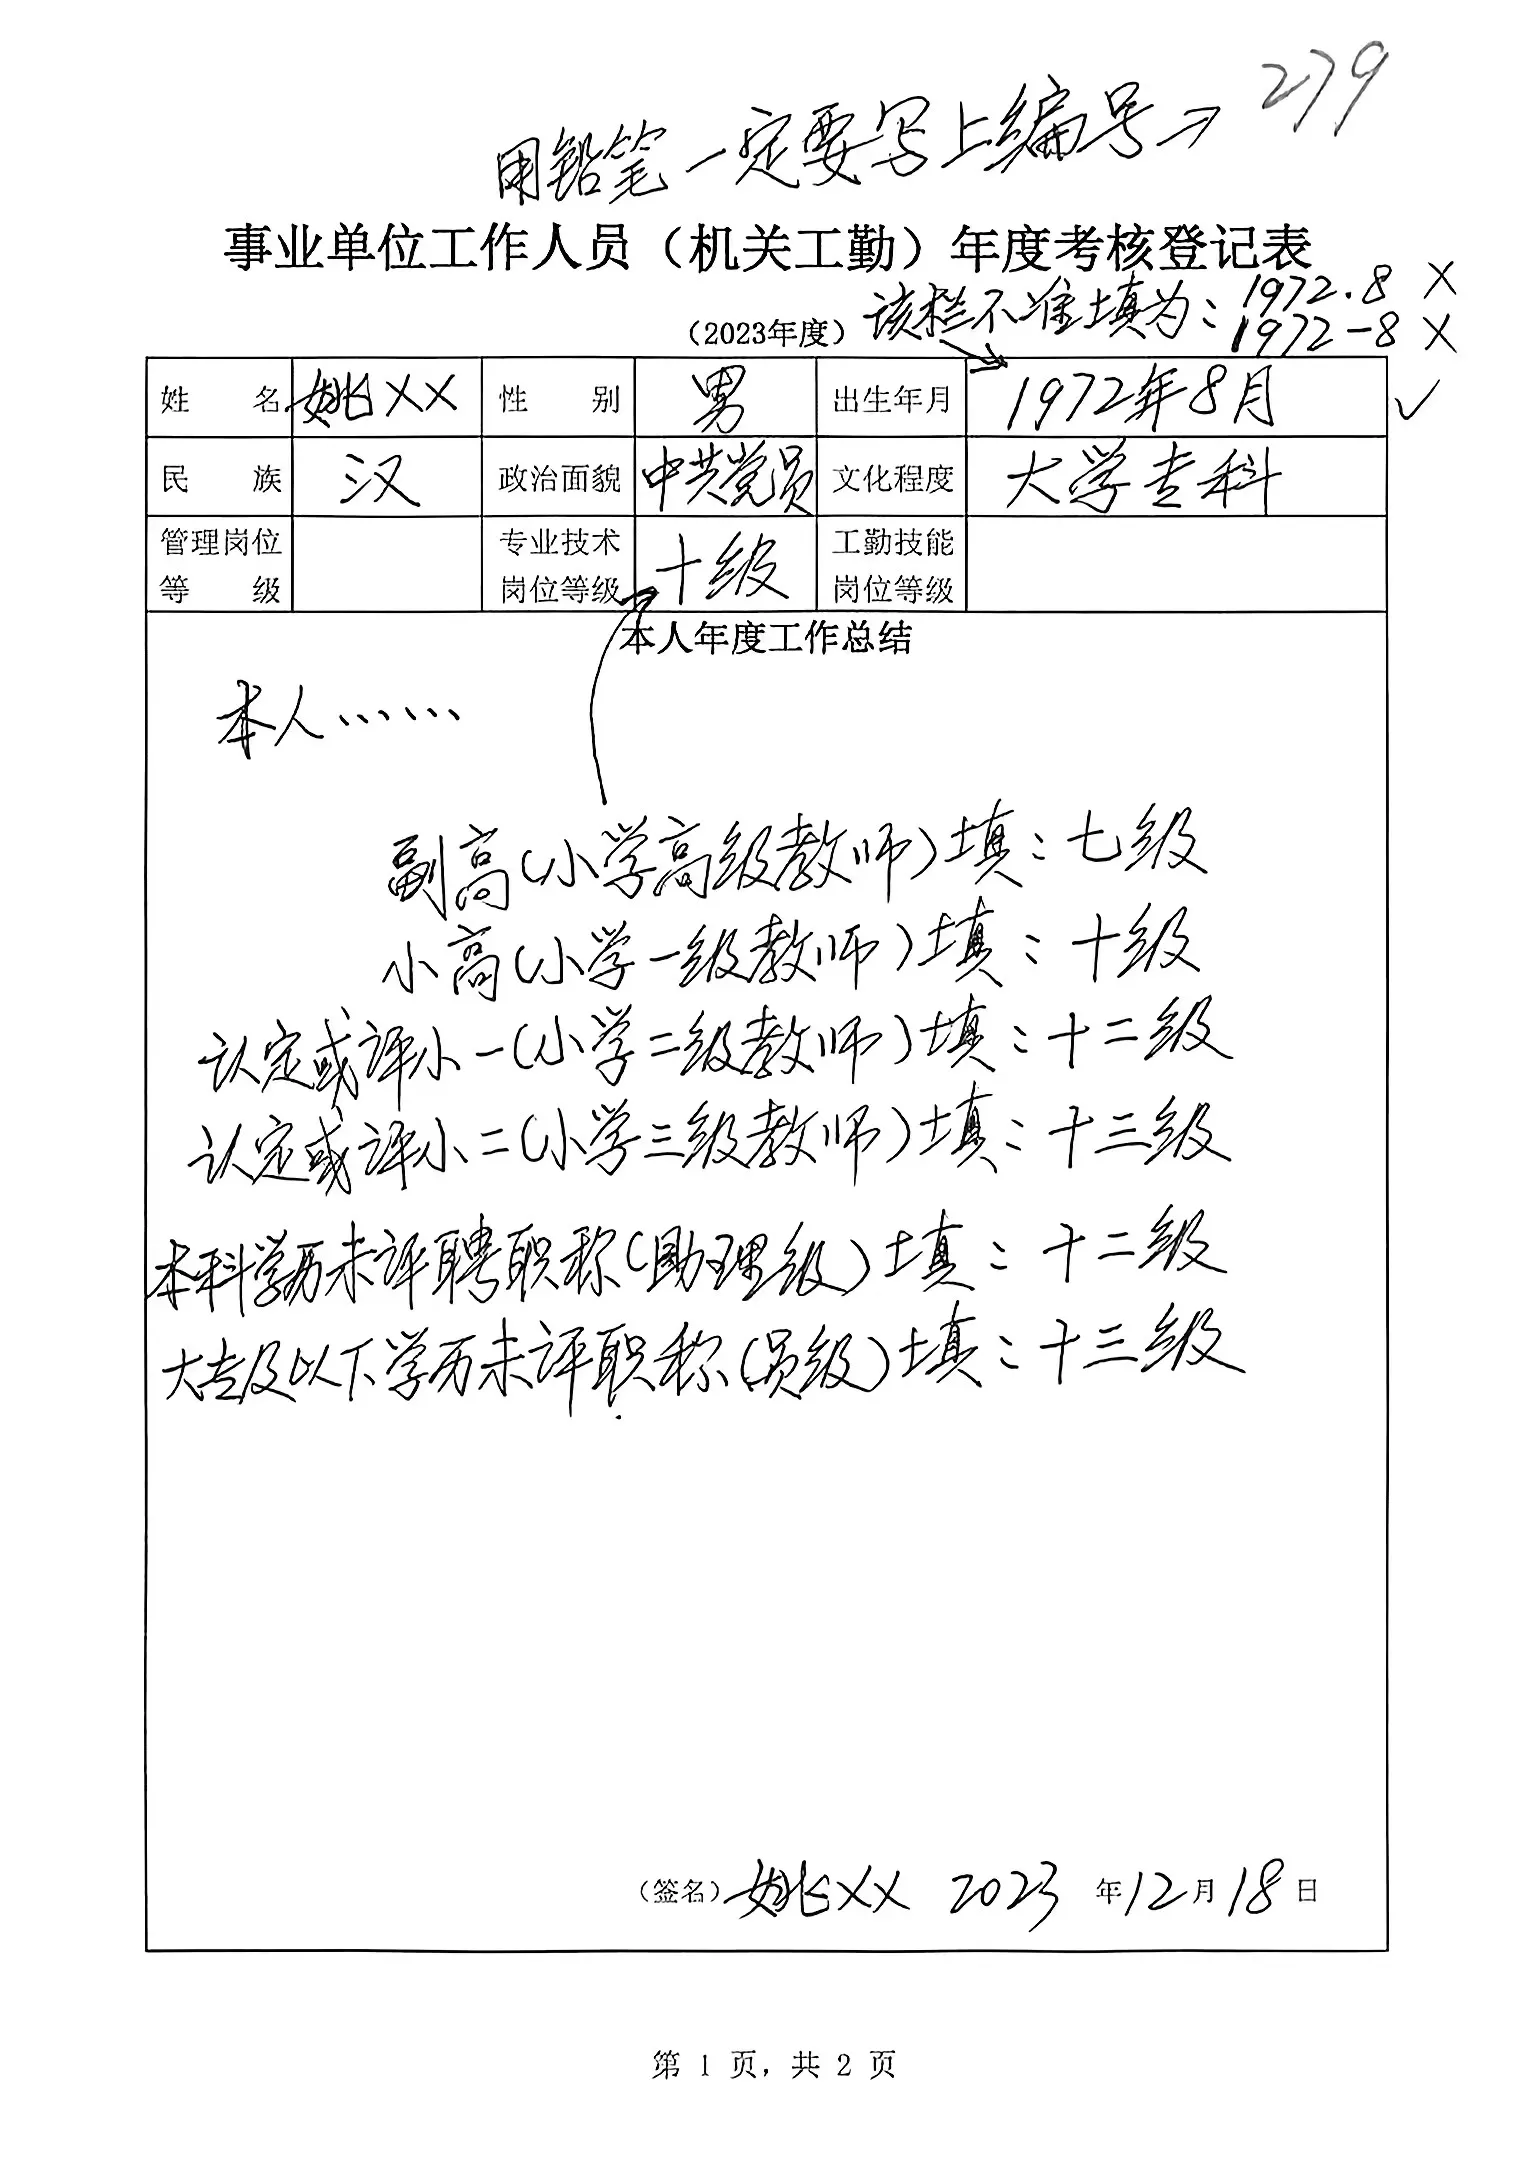 279
用铅笔一定要写上编号→
事业单位工作人员（机关工勤）年度考核登记表
（2023年度）该栏不准填为：1972.8 ×
1972-8 ×
姓 名 姚×× 性 别 男 出生年月 1972年8月 ✓
民 族 汉 政治面貌 中共党员 文化程度 大学专科
管理岗位等 级 专业技术岗位等级 十级 工勤技能岗位等级
本人年度工作总结
本人……
副高(小学高级教师)填：七级
小高(小学一级教师)填：十级
认定或评小一(小学二级教师)填：十二级
认定或评小二(小学三级教师)填：十三级
本科学历未评聘职称(助理级)填：十二级
大专及以下学历未评职称(员级)填：十三级
（签名）姚×× 2023 年12月18日
第 1 页，共 2 页